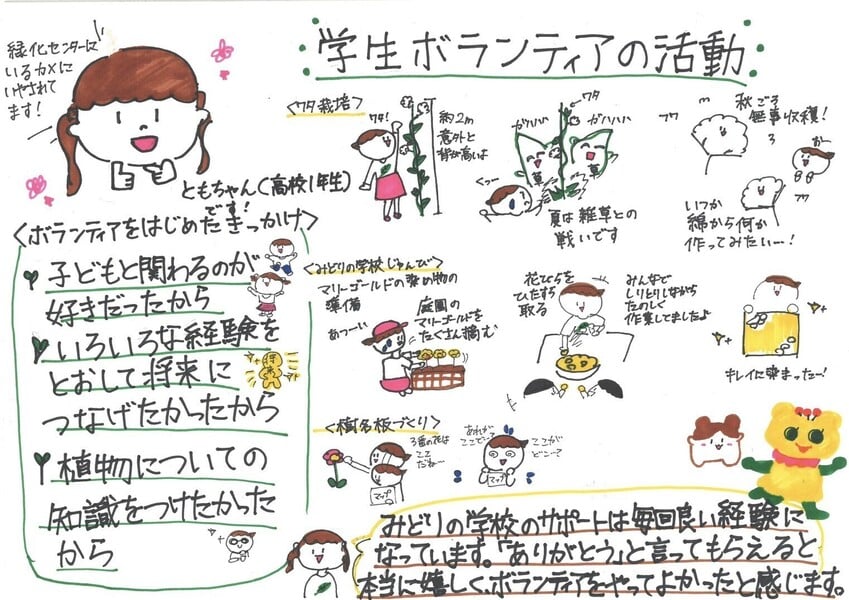 学生ボランティアの活動
緑化センターに
いるカメに
いやされて
ます!
ともちゃん(高校1年生)
です!
<ボランティアをはじめたきっかけ>
子どもと関わるのが
好きだったから
いろいろな経験を
とおして将来に
つなげたかったから
将来
植物についての
知識をつけたかった
から
<ワタ栽培>
ワタ!
約2m
意外と
背が高いよ
ワタ
ガハハハ
ガハハハ
草
草
くっ…
夏は雑草との
戦いです
秋ごろ
無事収穫!
フワ
フワ
いつか
綿から何か
作ってみたい…!
<みどりの学校じゅんび>
マリーゴールドの染め物の
準備
あつーい
庭園の
マリーゴールドを
たくさん摘む
花びらを
ひたすら
取る
みんなで
しりとりしながら
たのしく
作業してましたよ
キレイに染まったー!
<樹名板づくり>
3番の花は
ここ
だね…
マップ
あれが
ここで…?
ここが
どこ…?
マップ
みどりの学校のサポートは毎回良い経験に
なっています。「ありがとう」と言ってもらえると
本当に嬉しく、ボランティアをやってよかったと感じます。